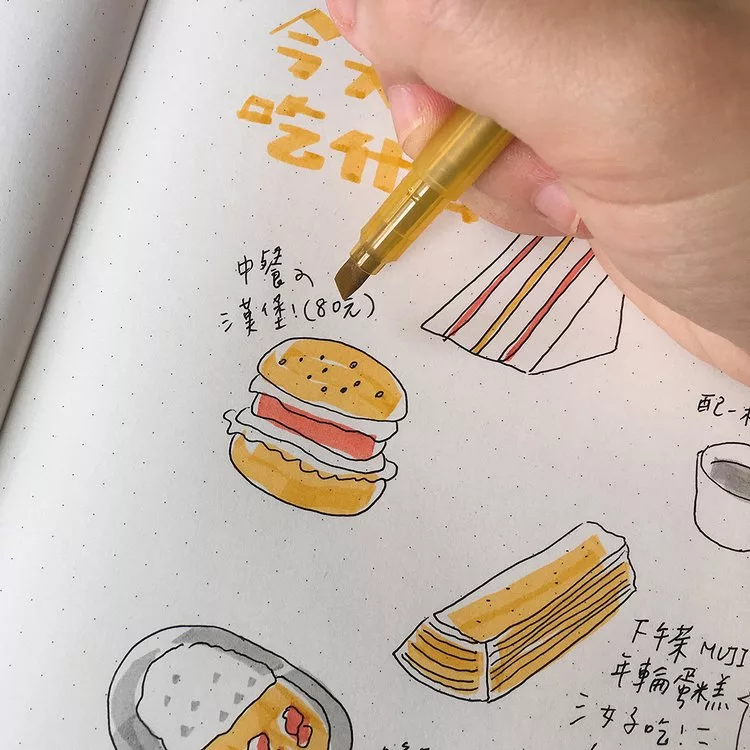 今天
吃什
中餐の
漢堡!(80元)
配一
下午茶 MUJI
年輪蛋糕
三女子吃!